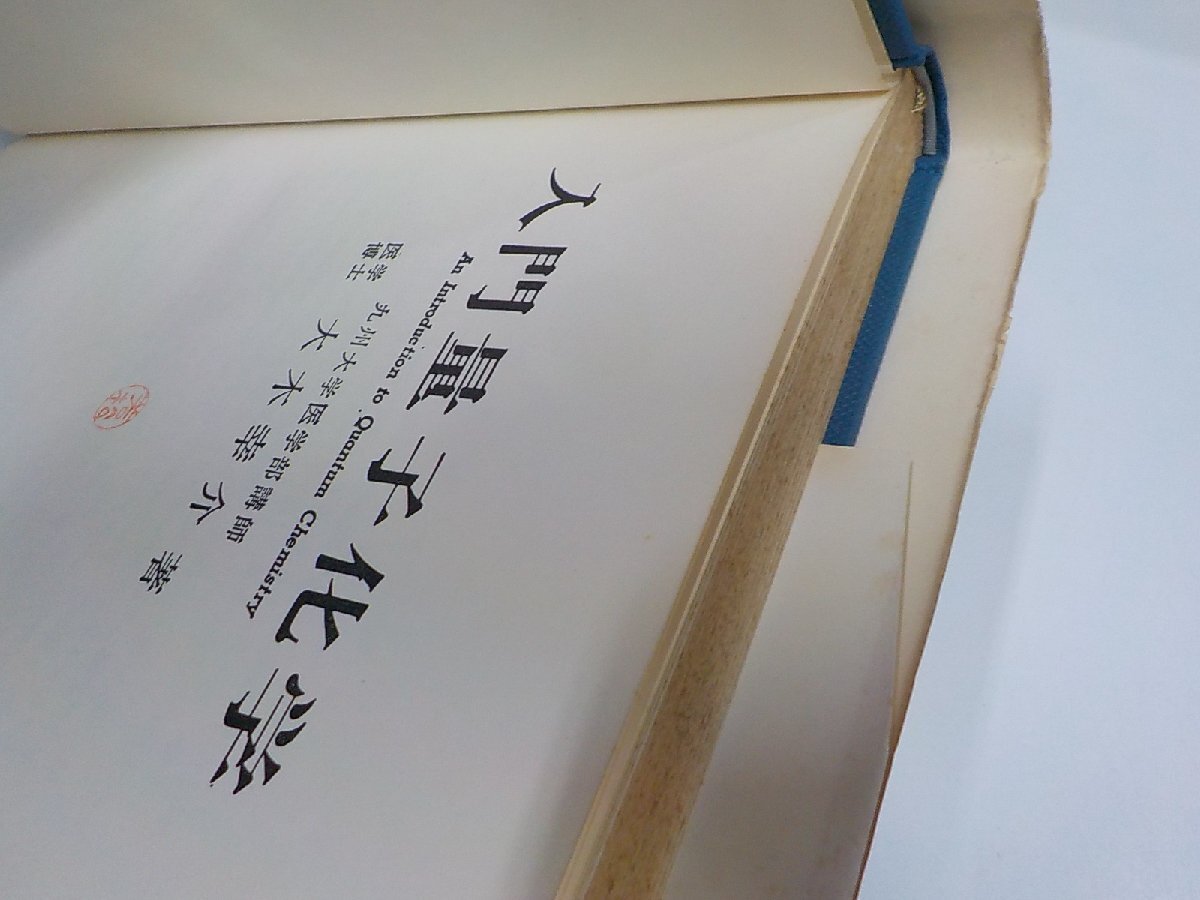 入門量子化学
An Introduction to Quantum Chemistry
医学博士 九州大学医学部講師
大木幸介 著